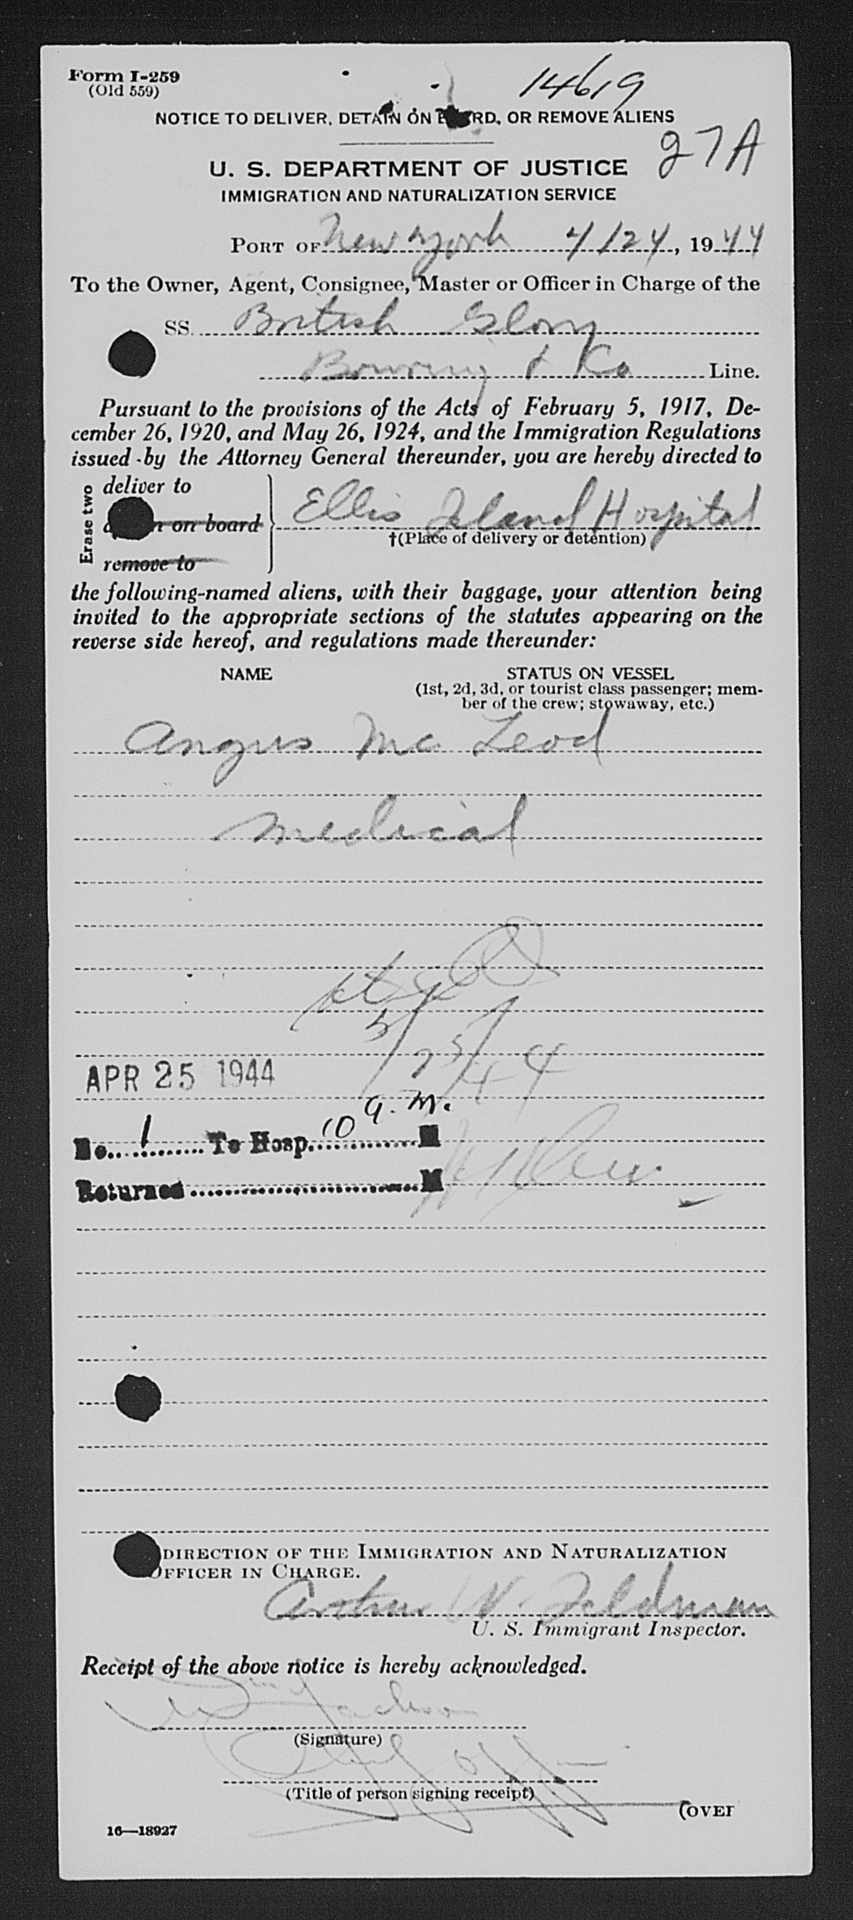 Form I-259
(Old 559)
14619
NOTICE TO DELIVER, DETAIN ON BOARD, OR REMOVE ALIENS
27A
U. S. DEPARTMENT OF JUSTICE
IMMIGRATION AND NATURALIZATION SERVICE
PORT OF New York 4/24, 1944
To the Owner, Agent, Consignee, Master or Officer in Charge of the
SS. British Glory
Bowring & Co Line.
Pursuant to the provisions of the Acts of February 5, 1917, De-
cember 26, 1920, and May 26, 1924, and the Immigration Regulations
issued by the Attorney General thereunder, you are hereby directed to
Erase two
deliver to
on board
Ellis Island Hospital
†(Place of delivery or detention)
remove to
the following-named aliens, with their baggage, your attention being
invited to the appropriate sections of the statutes appearing on the
reverse side hereof, and regulations made thereunder:
NAME STATUS ON VESSEL
(1st, 2d, 3d, or tourist class passenger; mem-
ber of the crew; stowaway, etc.)
Angus Mc Leod
Medical
5/25/44
APR 25 1944
No. 1 To Hosp. 10 a.m. M
Returned M
DIRECTION OF THE IMMIGRATION AND NATURALIZATION
OFFICER IN CHARGE.
Arthur W. Feldman
U. S. Immigrant Inspector.
Receipt of the above notice is hereby acknowledged.
Jackson
(Signature)
Chief Offr
(Title of person signing receipt)
(OVER
16—18927